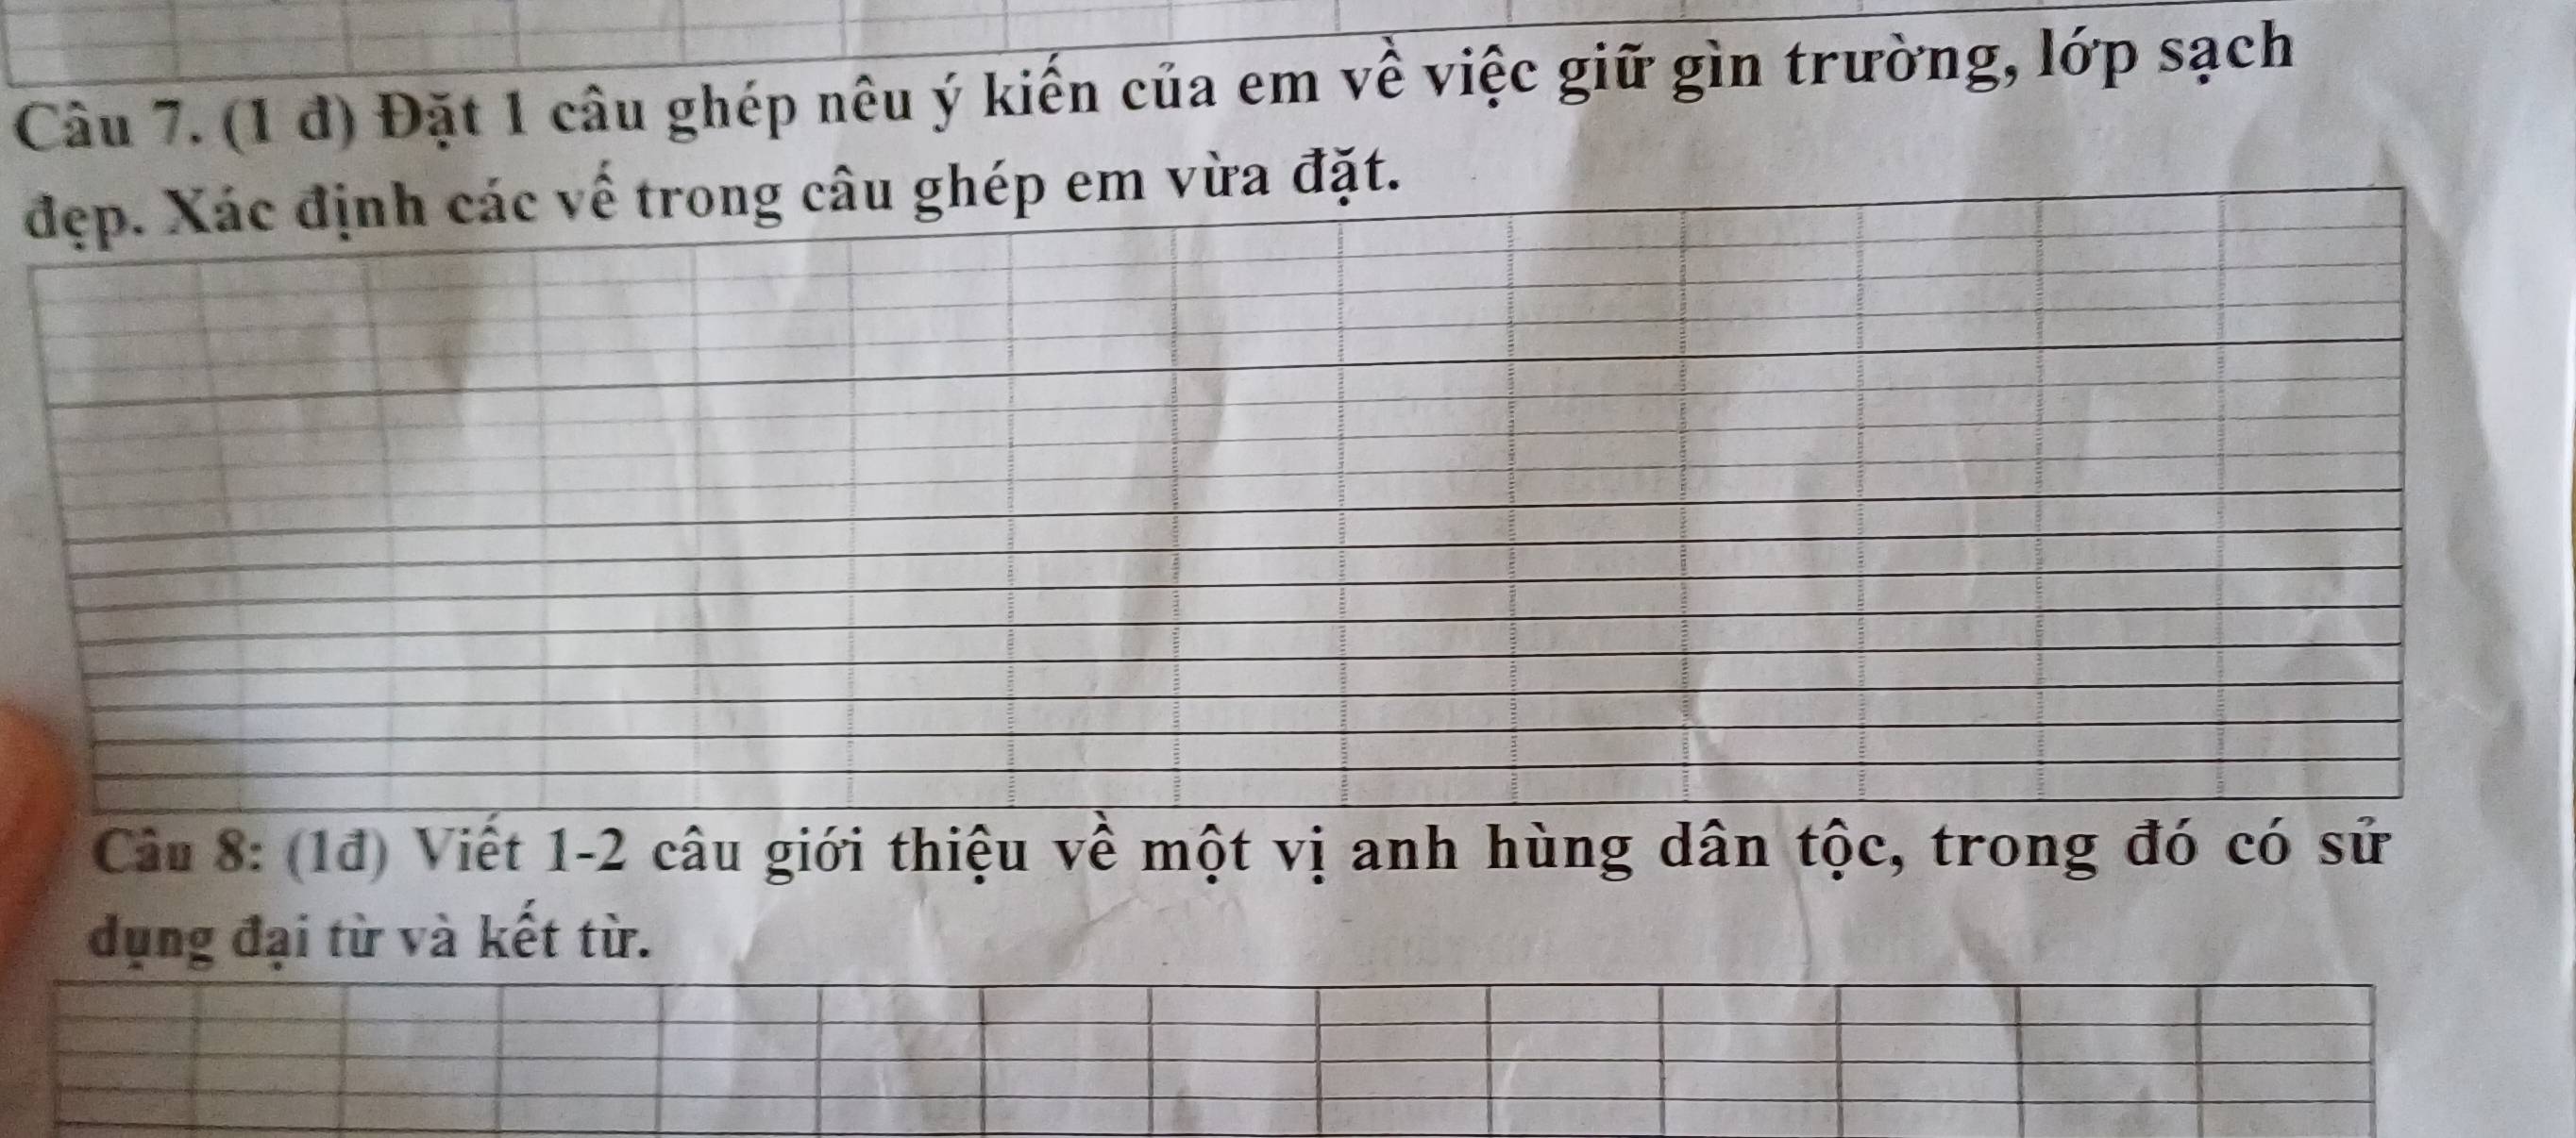 Câu 7. (1 đ) Đặt 1 câu ghép nêu ý kiến của em về việc giữ gìn trường, lớp sạch
đẹp. Xác định các vế trong câu ghép em vừa đặt.
Câu 8: (1đ) Viết 1-2 câu giới thiệu về một vị anh hùng dân tộc, trong đó có sử
dụng đại từ và kết từ.